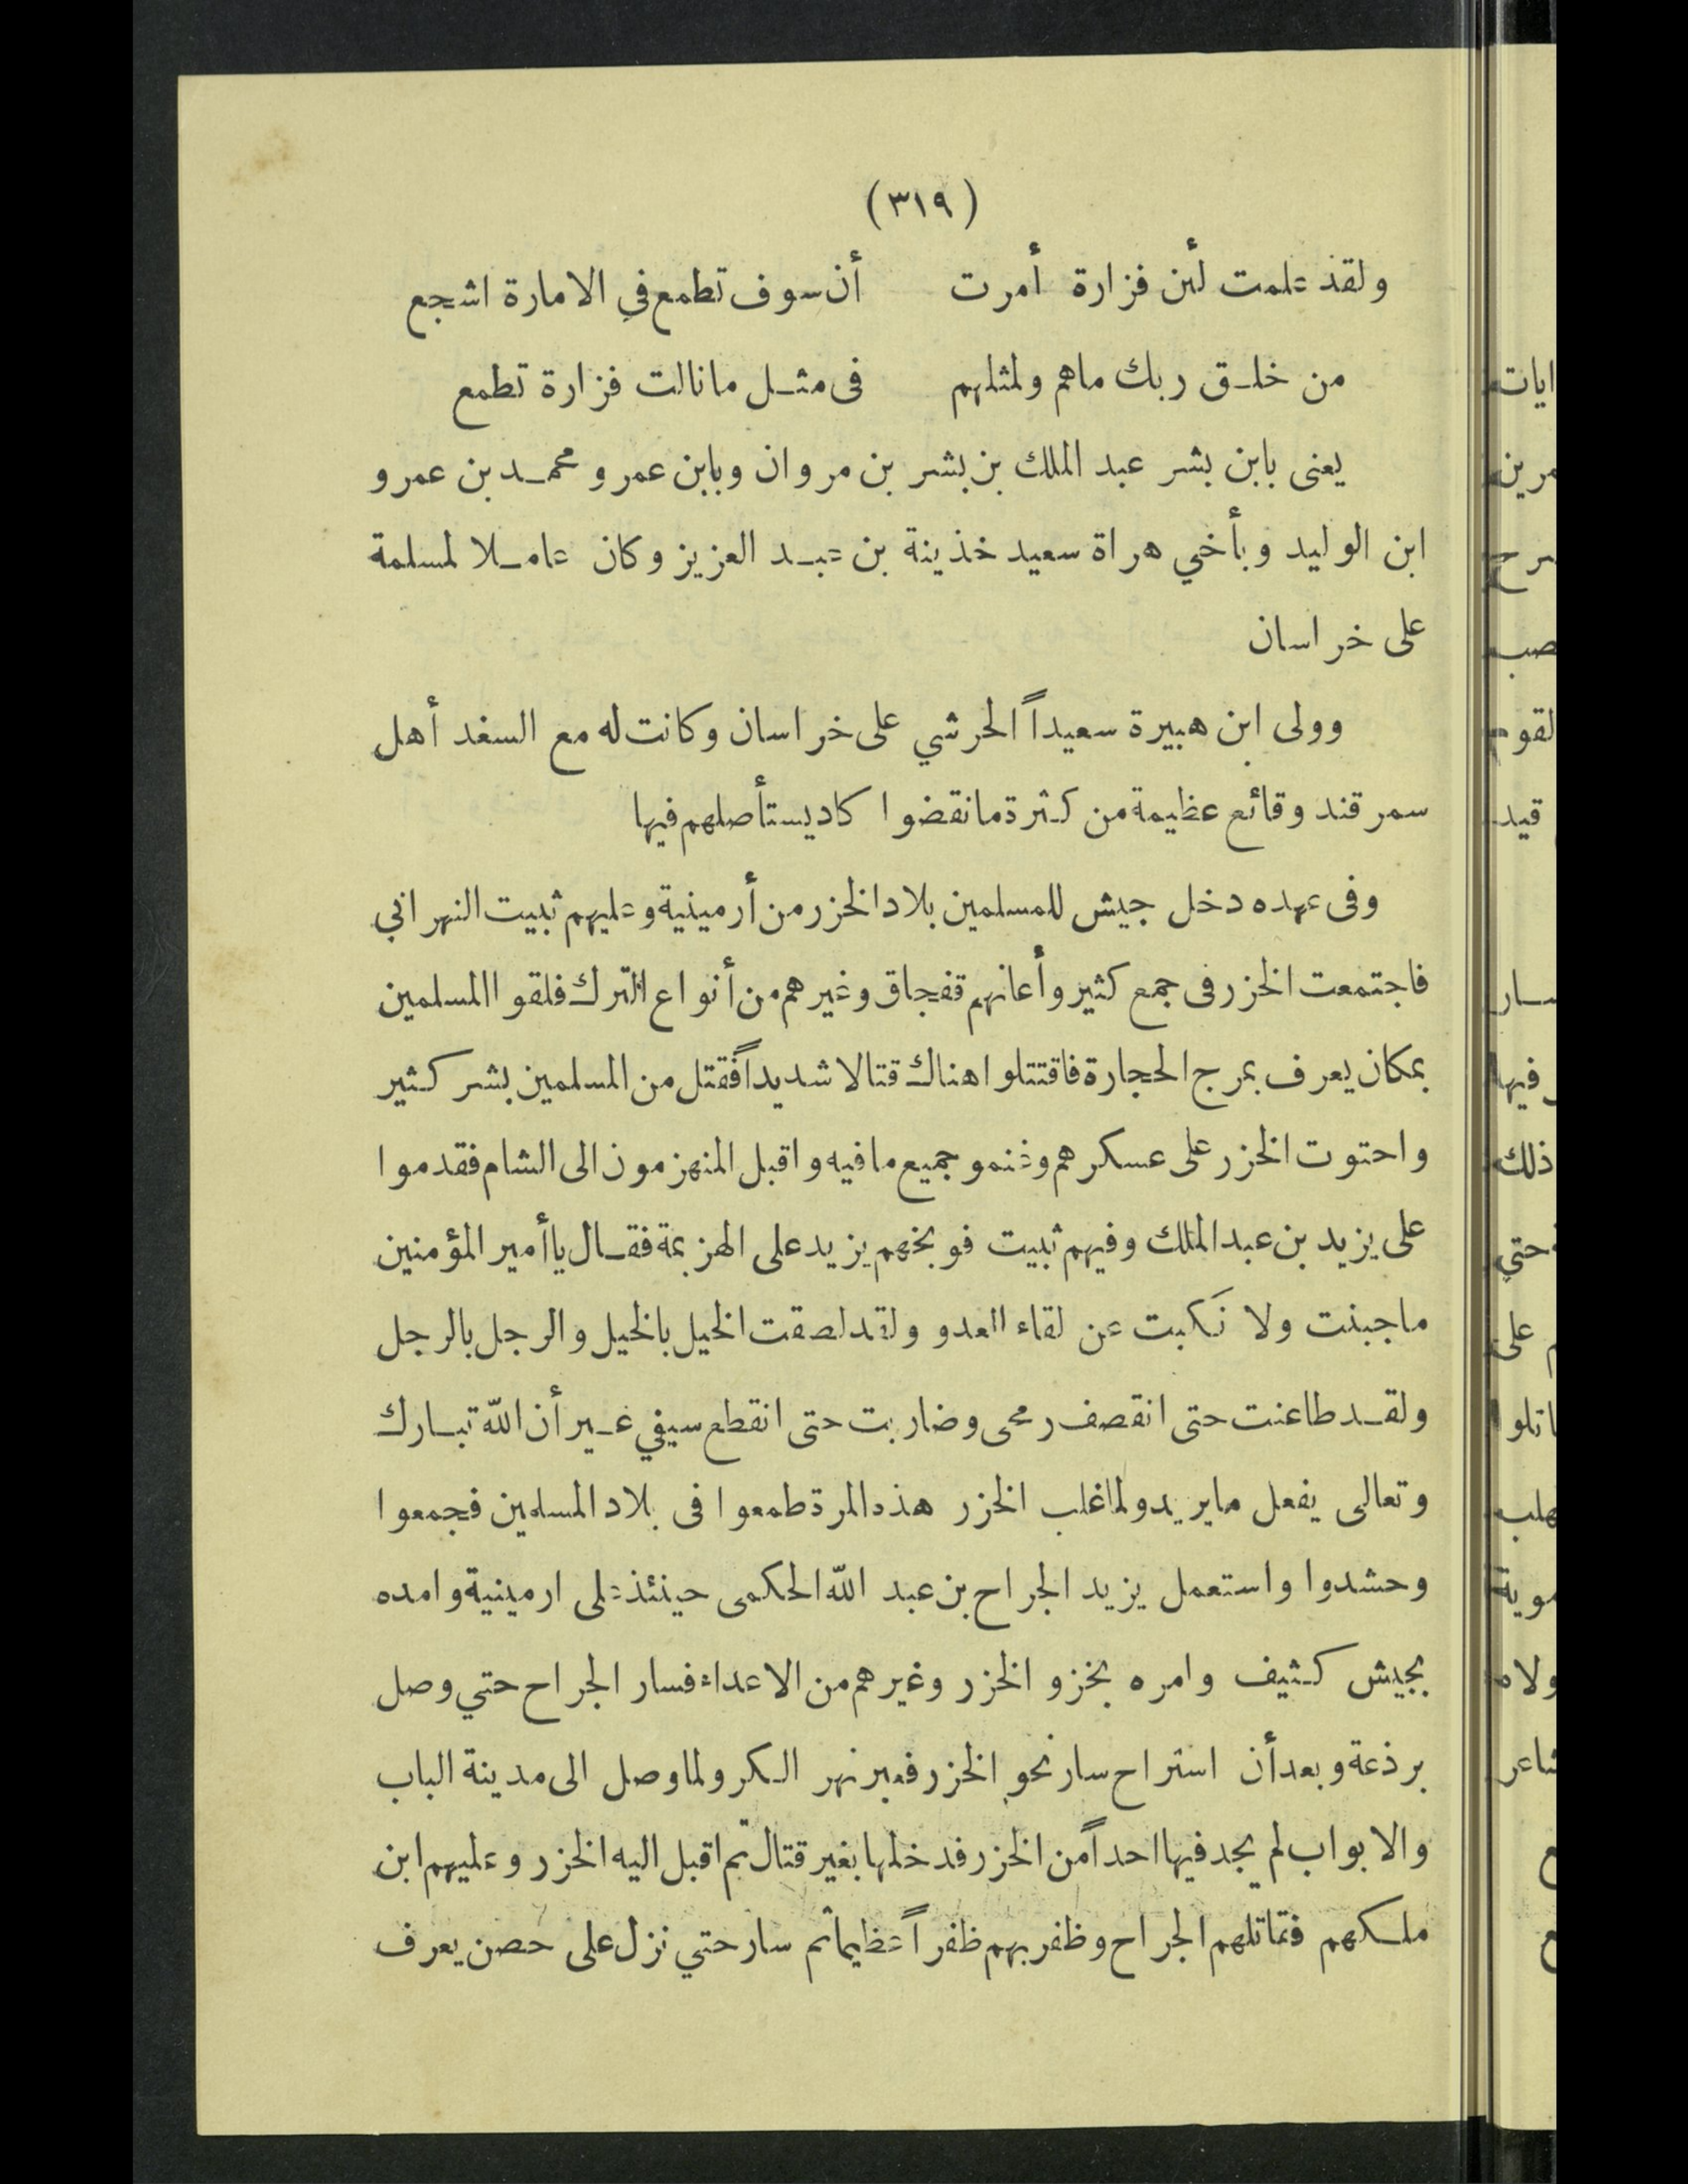 (٣١٩)
ولقذ علمت لئن فزارة أمرت أن سوف تطمع في الامارة اشجع
من خلق ربك ماهم ولمثلهم فى مثل مانالت فزارة تطمع
يعنى بابن بشر عبد الملك بن بشر بن مروان وبابن عمرو محمد بن عمرو
ابن الوليد وبأخي هراة سعيد خذينة بن عبد العزيز وكان عاملا لمسلمة
على خراسان
وولى ابن هبيرة سعيداً الحرشي على خراسان وكانت له مع السغد أهل
سمرقند وقائع عظيمة من كثرة مانقضوا كاد يستأصلهم فيها
وفى عهده دخل جيش للمسلمين بلاد الخزر من أرمينية وعليهم ثبيت النهراني
فاجتمعت الخزر فى جمع كثير وأعانهم قفجاق وغيرهم من أنواع الترك فلقوا المسلمين
بمكان يعرف بمرج الحجارة فاقتتلوا هناك قتالا شديداً فقتل من المسلمين بشر كثير
واحتوت الخزر على عسكرهم وغنمو جميع مافيه واقبل المنهزمون الى الشام فقدموا
على يزيد بن عبد الملك وفيهم ثبيت فوبخهم يزيد على الهزيمة فقال ياأمير المؤمنين
ماجبنت ولا نَكبت عن لقاء العدو ولقد لصقت الخيل بالخيل والرجل بالرجل
ولقد طاعنت حتى انقصف رمحى وضاربت حتى انقطع سيفي غير أن الله تبارك
وتعالى يفعل مايريد ولما غلب الخزر هذه المرة طمعوا فى بلاد المسلمين فجمعوا
وحشدوا واستعمل يزيد الجراح بن عبد الله الحكمى حينئذ على ارمينية وامده
بجيش كثيف وامره بخزو الخزر وغيرهم من الاعداء فسار الجراح حتي وصل
برذعة وبعد أن استراح سار نحو الخزر فعبر نهر الكر ولما وصل الى مدينة الباب
والابواب لم يجد فيها احداً من الخزر فدخلها بغير قتال ثم اقبل اليه الخزر وعليهم ابن
ملكهم فقاتلهم الجراح وظفر بهم ظفراً عظيما ثم سار حتي نزل على حصن يعرف